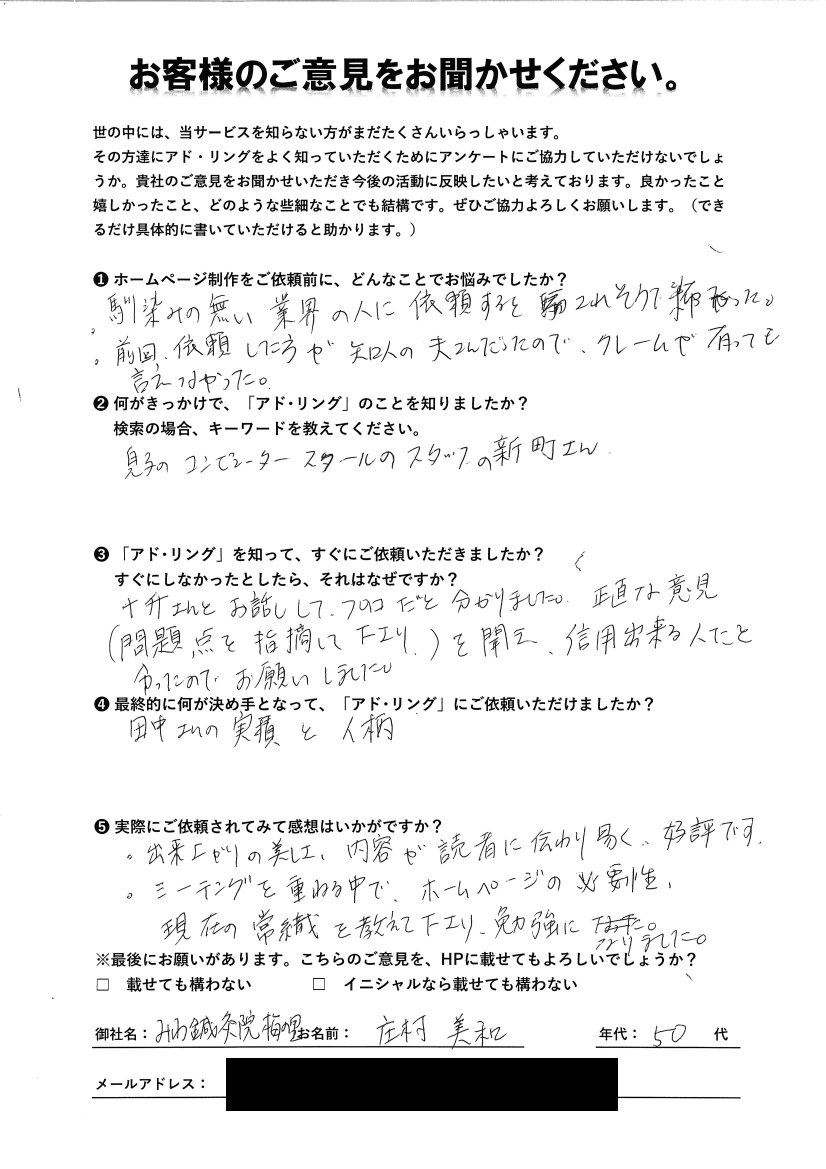 お客様のご意見をお聞かせください。
世の中には、当サービスを知らない方がまだたくさんいらっしゃいます。
その方達にアド・リングをよく知っていただくためにアンケートにご協力していただけないでしょ
うか。貴社のご意見をお聞かせいただき今後の活動に反映したいと考えております。良かったこと
嬉しかったこと、どのような些細なことでも結構です。ぜひご協力よろしくお願いします。（でき
るだけ具体的に書いていただけると助かります。）
❶ ホームページ制作をご依頼前に、どんなことでお悩みでしたか？
。馴染みの無い業界の人に依頼すると騙されそうで怖かった。
。前回、依頼した方が知人の夫さんだったので、クレームが有っても
言えなかった。
❷ 何がきっかけで、「アド･リング」のことを知りましたか？
検索の場合、キーワードを教えてください。
息子のコンピュータースクールのスタッフの新町さん
❸ 「アド･リング」を知って、すぐにご依頼いただきましたか？
すぐにしなかったとしたら、それはなぜですか？
さんとお話しして、プロだと分かりました。正直な意見
(問題点を指摘して下さり、)を聞え、信用出来る人だと
分ったのでお願いしました。
❹ 最終的に何が決め手となって、「アド･リング」にご依頼いただけましたか？
田中さんの実績と人柄
❺ 実際にご依頼されてみて感想はいかがですか？
。出来上がりの美しさ、内容が読者に伝わり易く、好評です。
。ミーティングを重ねる中で、ホームページの必要性、
現在の常識を教えて下さり、勉強に
なりました。
※最後にお願いがあります。こちらのご意見を、HPに載せてもよろしいでしょうか？
□ 載せても構わない □ イニシャルなら載せても構わない
御社名：みわ鍼灸院梅の里 お名前：庄村 美和 年代：50 代
メールアドレス：